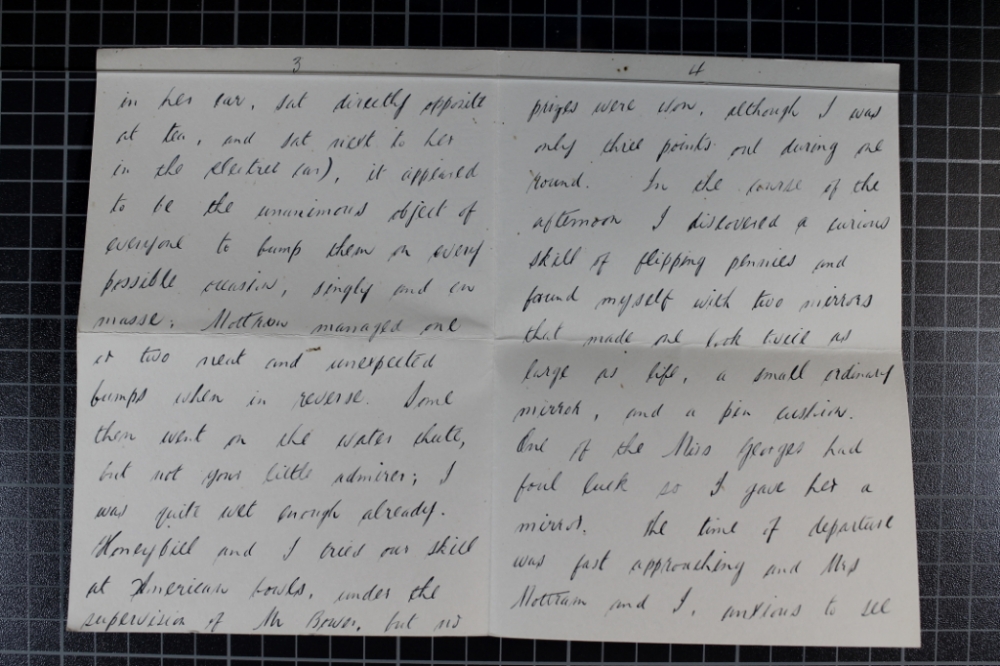 3
in her car, sat directly opposite
at tea, and sat next to her
in the electric car), it appeared
to be the unanimous object of
everyone to bump them on every
possible occasion, singly and en
masse. Mottram managed one
or two neat and unexpected
bumps when in reverse. Some
then went on the water chute,
but not your little admirer; I
was quite wet enough already.
Honeybill and I tried our skill
at American bowls, under the
supervision of Mr Bower, but no
4
prizes were won, although I was
only three points out during one
round. In the course of the
afternoon I discovered a curious
skill of flipping pennies and
found myself with two mirrors
that made one look twice as
large as life, a small ordinary
mirror, and a pin cushion.
One of the Miss Georges had
foul luck so I gave her a
mirror. The time of departure
was fast approaching and Mrs
Mottram and I, anxious to see